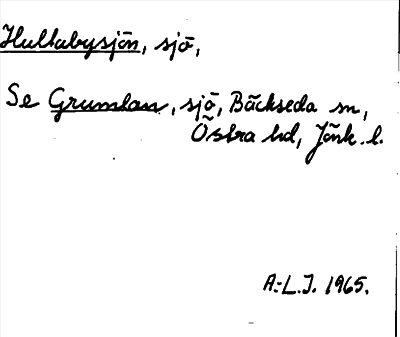 Hultabysjön, sjö,
Se Grumlan, sjö, Bäckseda sn,
Östra hd, Jönk. l.
A.-L.J. 1965.